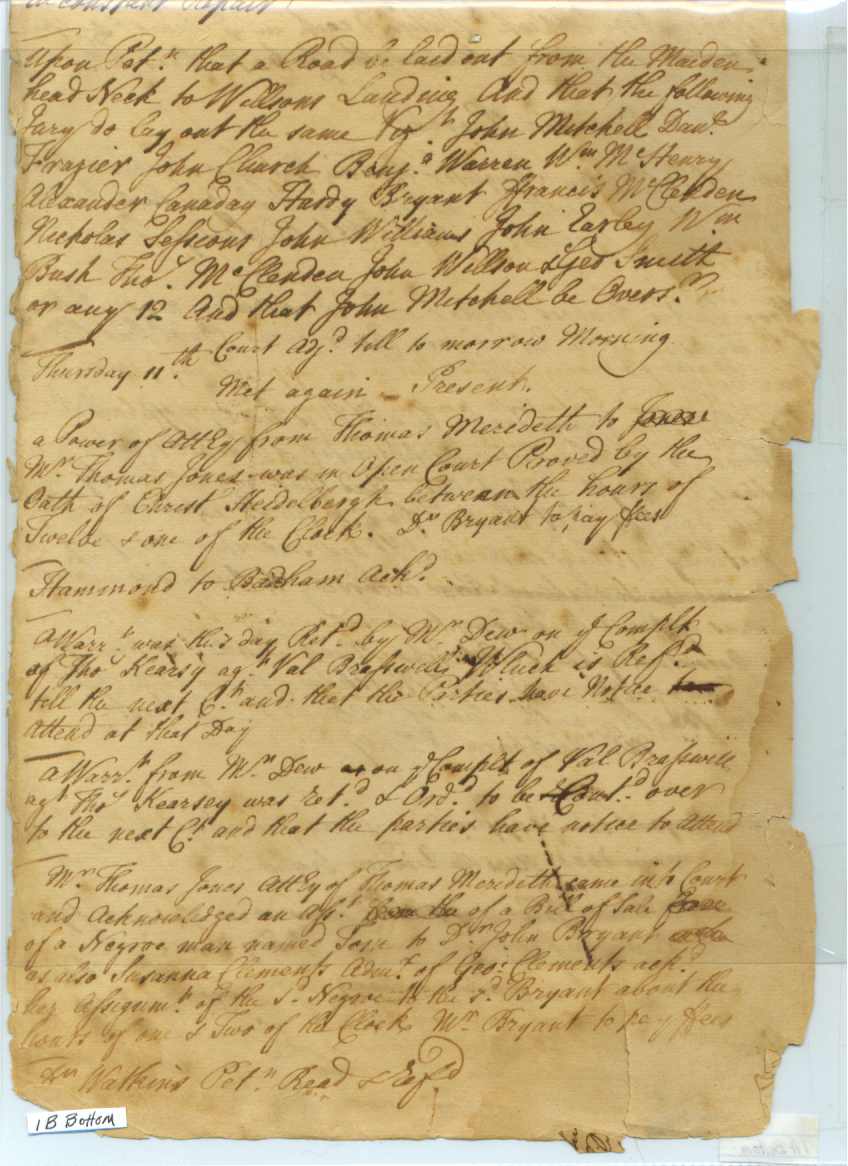 in constant Repair
Upon Pet.n that a Road be laid out from the Maiden
head Neck to Willsons Landing And that the following
Jury do lay out the same Viz.t John Mitchell Dan.l
Frazier John Church Benj.a Warren W.m McHenry
Alexander Canaday Hardy Bryant ffrancis McClenden
Nicholas Sessions John Williams John Earley W.m
Bush Tho.s McClenden John Willson & Geo Smith
or any 12 And that John Mitchell be Overs.r
Court Adj.d till to morrow Morning
Thursday 11.th
Met again Present.
a Power of Att͞y from Thomas Merideth to Jones
M.r Thomas Jones was in Open Court Proved by the
Oath of Christ Heidelbergh between the hours of
Twelve & one of the Clock. D.r Bryant to pay ffees
Hammond to Badham Ack.d
A Warr.t was this day Ret.d by M.r Dew on y.e Complt
of Tho.s Kearsy ag.t Val Brasswell Which is Ref.d
till the next C.t and that the Parties have Notice to
Attend at that Day
A Warr.t from M.r Dew on y.e Complt of Val Brasswell
ag.t Tho.s Kearsey was ret.d & Ord.d to be Cont.d over
to the next C.t and that the parties have notice to Attend
M.r Thomas Jones Att͞y of Thomas Merideth came into Court
and Acknowledged an Ass.t of a Bill of Sale
of a Negroe man named Tom to D.r John Bryant
as also Susanna Clements Adm.x of Geo: Clements ack.d
her Assignm.t of the s.d Negroe to the s.d Bryant about the
hours of one & Two of the Clock M.r Bryant to pay ffees
Watkins Pet.n Read & Ref.d
1 B Bottom